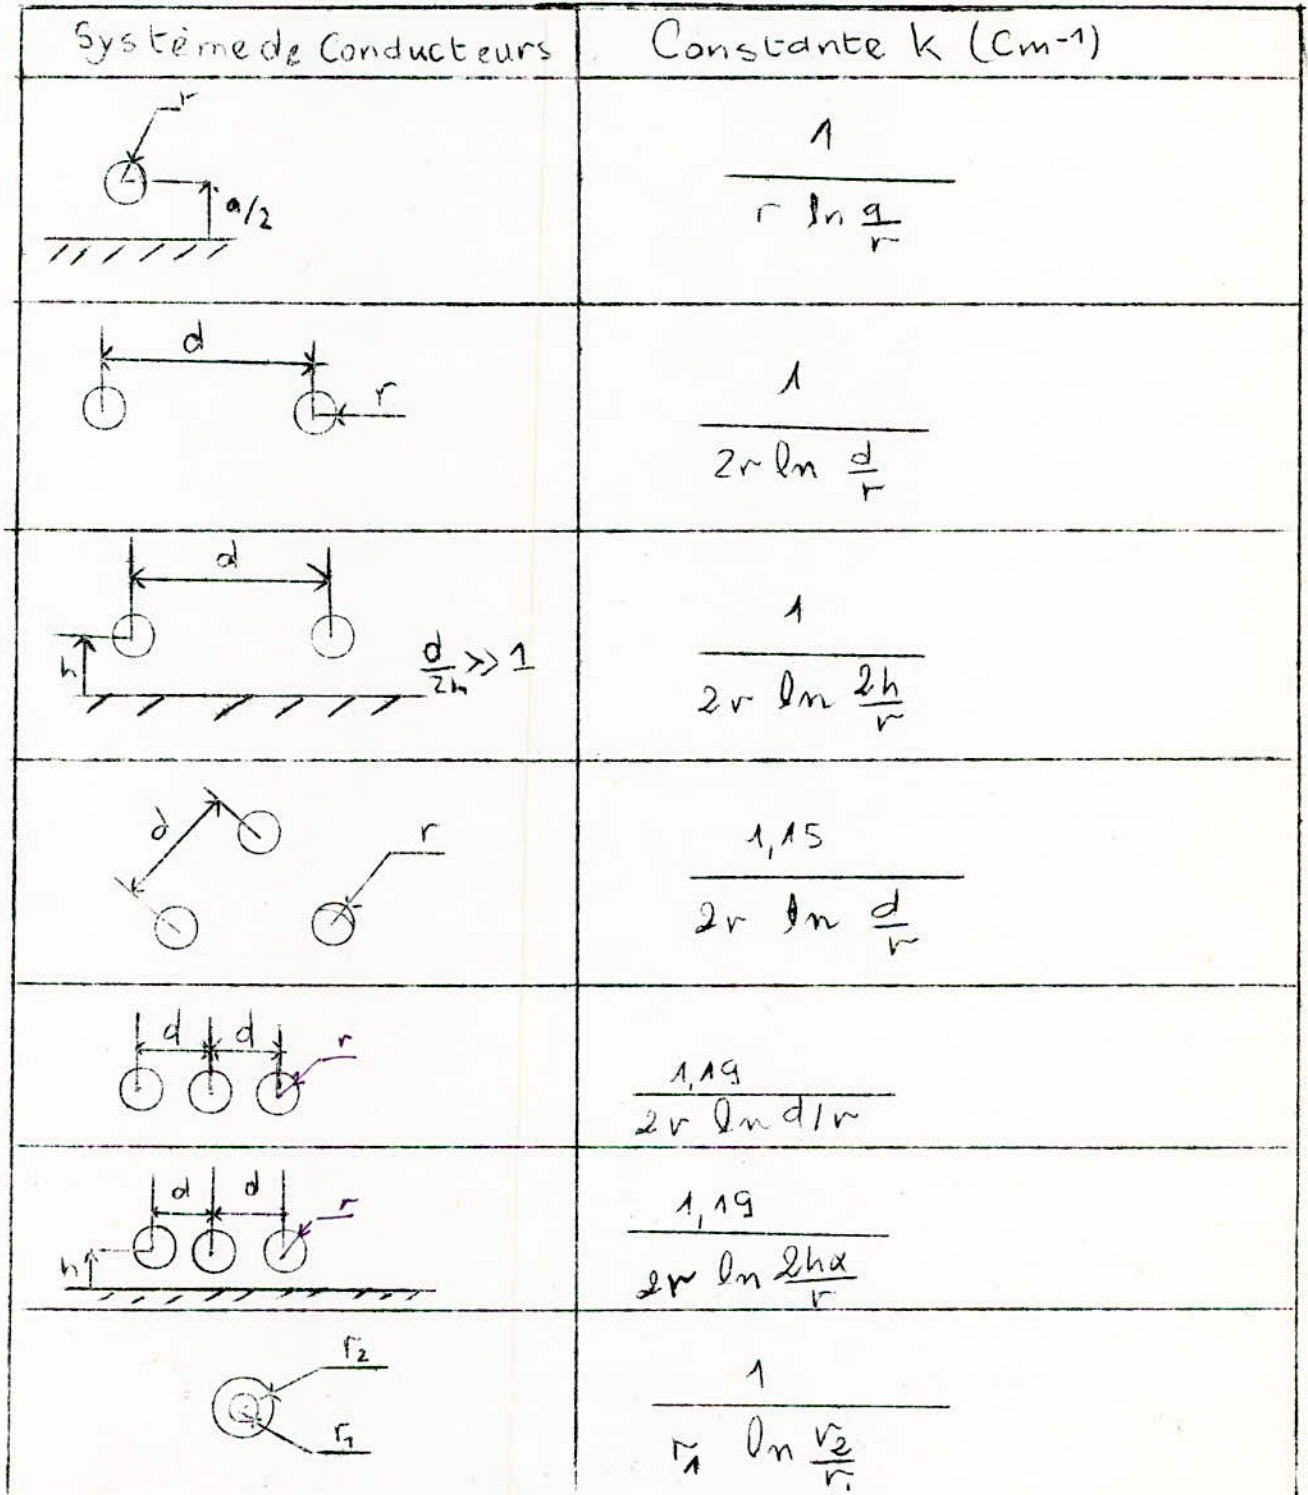 Système de Conducteurs Constante k (cm-1)
r
a/2
1
r ln a/r
d
r
1
2r ln d/r
d
h
d/2h >> 1
1
2r ln 2h/r
d
r
1,15
2r ln d/r
d d
r
1,19
2r ln d/r
d d
r
h
1,19
2r ln 2hα/r
r2
r1
1
r1 ln r2/r1